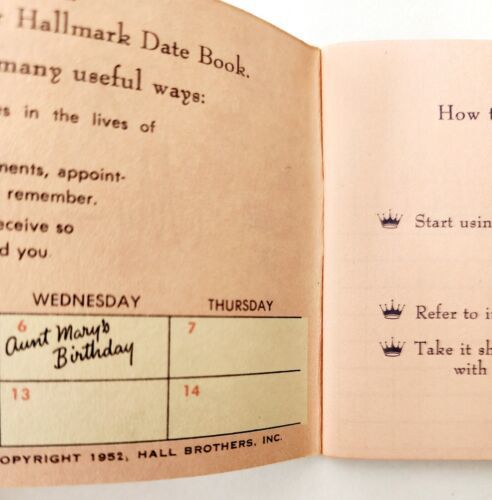 Hallmark Date Book.
many useful ways:
in the lives of
appoint-
remember.
so
you
WEDNESDAY THURSDAY
6 7
Aunt Mary's
Birthday
13 14
COPYRIGHT 1952, HALL BROTHERS, INC.
How
Start
Refer to
Take it
with